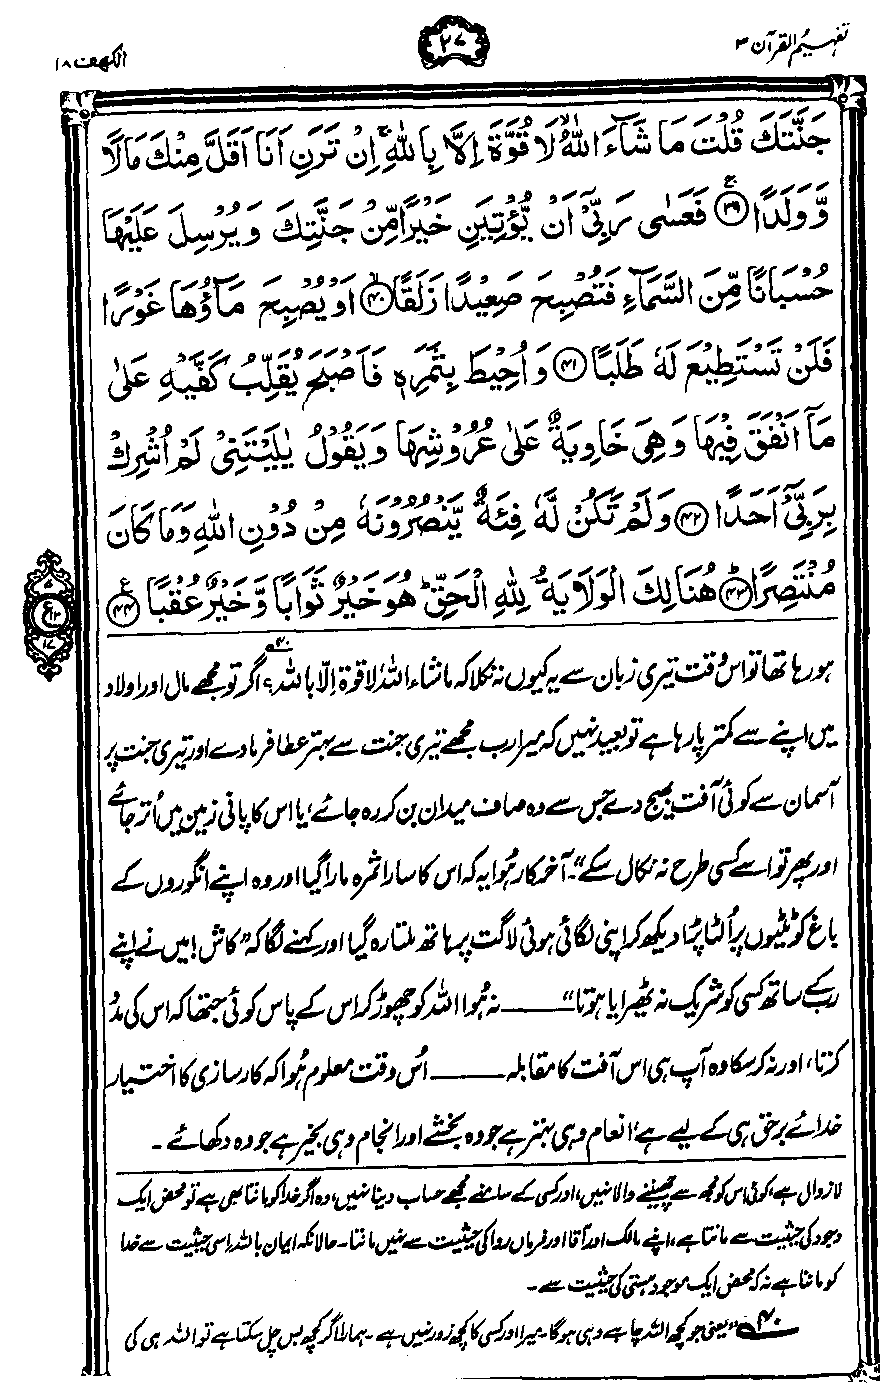 تفہیم القرآن ۳
۲۷
الکہف ۱۸
جَنَّتَكَ قُلْتَ مَا شَآءَ اللّٰهُ ۙ لَا قُوَّةَ اِلَّا بِاللّٰهِ ۚ اِنْ تَرَنِ اَنَا اَقَلَّ مِنْكَ مَالًا
وَّوَلَدًا ۚ ﴿۳۹﴾ فَعَسٰى رَبِّيْٓ اَنْ يُّؤْتِيَنِ خَيْرًا مِّنْ جَنَّتِكَ وَيُرْسِلَ عَلَيْهَا
حُسْبَانًا مِّنَ السَّمَآءِ فَتُصْبِحَ صَعِيْدًا زَلَقًا ۙ ﴿۴۰﴾ اَوْ يُصْبِحَ مَآؤُهَا غَوْرًا
فَلَنْ تَسْتَطِيْعَ لَهٗ طَلَبًا ﴿۴۱﴾ وَاُحِيْطَ بِثَمَرِهٖ فَاَصْبَحَ يُقَلِّبُ كَفَّيْهِ عَلٰى
مَآ اَنْفَقَ فِيْهَا وَهِيَ خَاوِيَةٌ عَلٰى عُرُوْشِهَا وَيَقُوْلُ يٰلَيْتَنِيْ لَمْ اُشْرِكْ
بِرَبِّيْٓ اَحَدًا ﴿۴۲﴾ وَلَمْ تَكُنْ لَّهٗ فِئَةٌ يَّنْصُرُوْنَهٗ مِنْ دُوْنِ اللّٰهِ وَمَا كَانَ
مُنْتَصِرًا ؕ ﴿۴۳﴾ هُنَالِكَ الْوَلَايَةُ لِلّٰهِ الْحَقِّ ؕ هُوَ خَيْرٌ ثَوَابًا وَّخَيْرٌ عُقْبًا ﴿۴۴﴾
۵
ع
۱۷
ہو رہا تھا تو اس وقت تیری زبان سے یہ کیوں نہ نکلا کہ ماشاء اللہ، لا قوۃ الّا باللہ؟ ۴۰ اگر تو مجھے مال اور اولاد
میں اپنے سے کمتر پا رہا ہے تو بعید نہیں کہ میرا رب مجھے تیری جنت سے بہتر عطا فرما دے اور تیری جنت پر
آسمان سے کوئی آفت بھیج دے جس سے وہ صاف میدان بن کر رہ جائے، یا اس کا پانی زمین میں اُتر جائے
اور پھر تو اسے کسی طرح نہ نکال سکے“۔ آخرکار ہُوا یہ کہ اس کا سارا ثمرہ مارا گیا اور وہ اپنے انگوروں کے
باغ کو ٹٹیوں پر اُلٹا پڑا دیکھ کر اپنی لگائی ہوئی لاگت پر ہاتھ ملتا رہ گیا اور کہنے لگا کہ ”کاش! میں نے اپنے
رب کے ساتھ کسی کو شریک نہ ٹھیرایا ہوتا“ ــــــ نہ ہُوا اللہ کو چھوڑ کر اس کے پاس کوئی جتھا کہ اس کی مدد
کرتا، اور نہ کر سکا وہ آپ ہی اس آفت کا مقابلہ ــــــ اُس وقت معلوم ہُوا کہ کارسازی کا اختیار
خدائے برحق ہی کے لیے ہے، انعام وہی بہتر ہے جو وہ بخشے اور انجام وہی بخیر ہے جو وہ دکھائے۔
لازوال ہے، کوئی اس کو مجھ سے چھیننے والا نہیں، اور کسی کے سامنے مجھے حساب دینا نہیں، وہ اگر خدا کو مانتا بھی ہے تو محض ایک
وجود کی حیثیت سے مانتا ہے، اپنے مالک اور آقا اور فرماں روا کی حیثیت سے نہیں مانتا۔ حالانکہ ایمان باللہ اسی حیثیت سے خدا
کو ماننا ہے نہ کہ محض ایک موجود ہستی کی حیثیت سے۔
۴۰ ”یعنی جو کچھ اللہ چاہے وہی ہوگا۔ میرا اور کسی کا کچھ زور نہیں ہے۔ ہمارا اگر کچھ بس چل سکتا ہے تو اللہ ہی کی